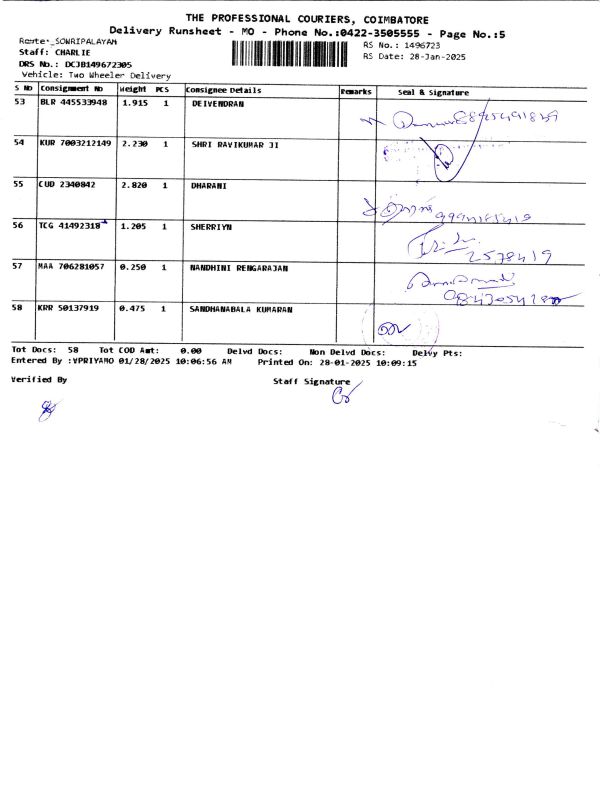 THE PROFESSIONAL COURIERS, COIMBATORE
Delivery Runsheet - MO - Phone No.:0422-3505555 - Page No.:5
Route: SOWRIPALAYAM
RS No.: 1496723
Staff: CHARLIE
RS Date: 28-Jan-2025
DRS No.: DCJB149672305
Vehicle: Two Wheeler Delivery
S No Consignment No Weight PCS Consignee Details Remarks Seal & Signature
53 BLR 445533948 1.915 1 DEIVENDRAN
54 KUR 7003212149 2.230 1 SHRI RAVIKUMAR JI
55 CUD 2340842 2.820 1 DHARANI
56 TCG 41492318 1.205 1 SHERRIYN
2578419
57 MAA 706281057 0.250 1 NANDHINI RENGARAJAN
58 KRR 50137919 0.475 1 SANDHANABALA KUMARAN
Tot Docs: 58 Tot COD Amt: 0.00 Delvd Docs: Non Delvd Docs: Delvy Pts:
Entered By :VPRIYAMO 01/28/2025 10:06:56 AM Printed On: 28-01-2025 10:09:15
Verified By Staff Signature